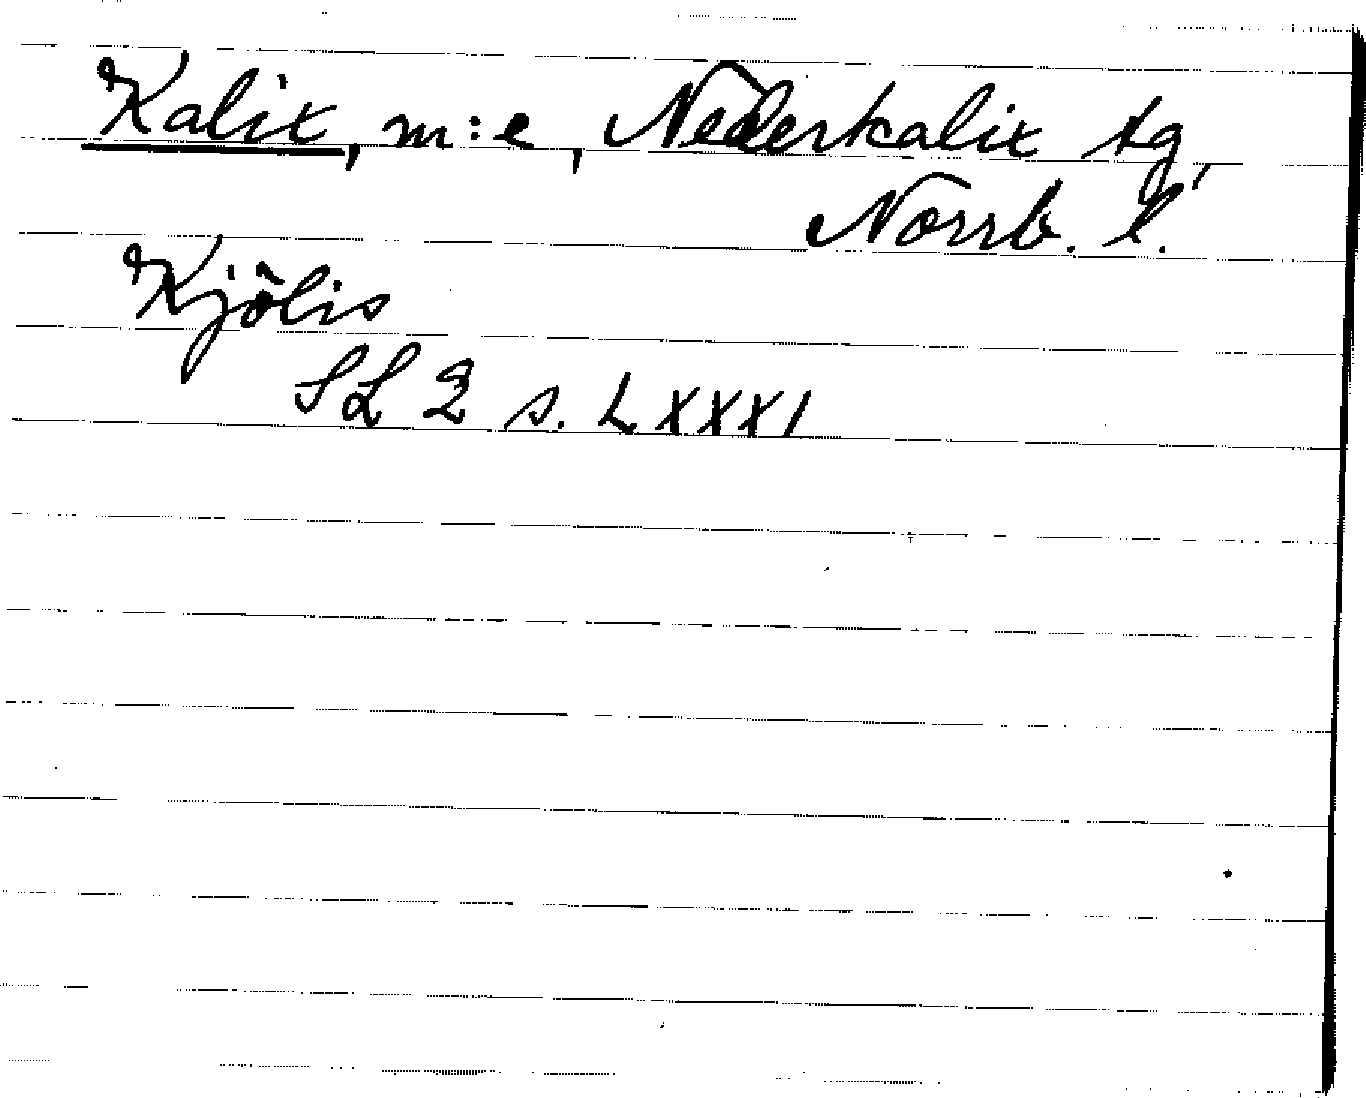 Kalix, m:e, Nederkalix tg,
Norrb. l.
Kjölis
SL 2 s. LXXXI